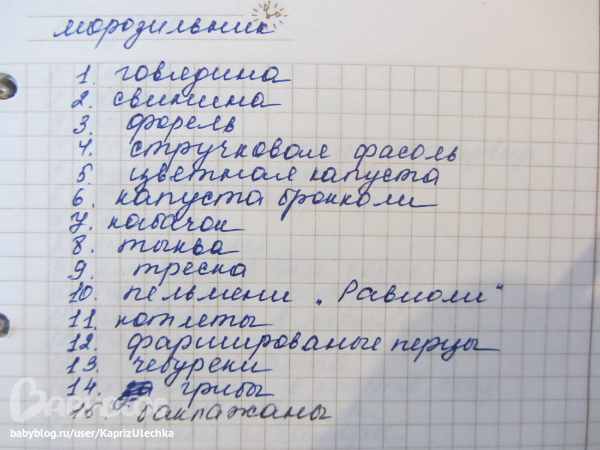 морозильник
1. говядина
2. свинина
3. форель
4. стручковая фасоль
5. цветная капуста
6. капуста брокколи
7. кабачок
8. тыква
9. треска
10. пельмени „Равиоли"
11. котлеты
12. фаршированые перцы
13. чебуреки
14. грибы
15. баклажаны
babyblog.ru/user/KaprizUlechka